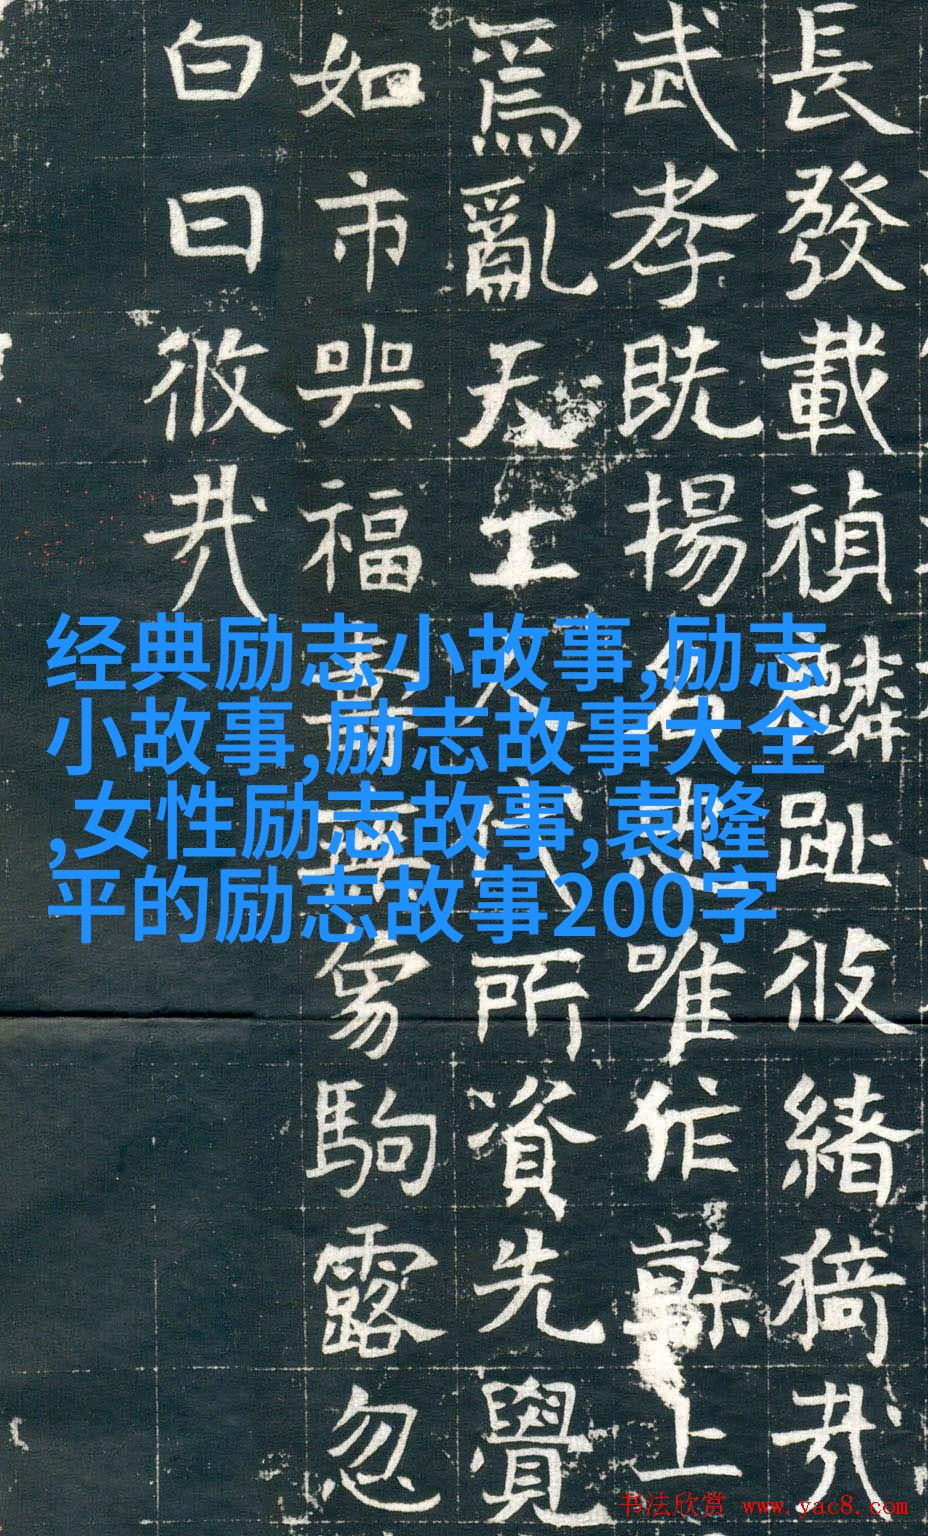 長發載禎麟趾彼緒猗哉
武孝既揚名唯作上
爲亂天工人代所資先覺
如市與福壽無爲駒露忽
白日攸哉
经典励志小故事,励志
小故事,励志故事大全
,女性励志故事,袁隆
平的励志故事200字
书法欣赏 www.yac8.com